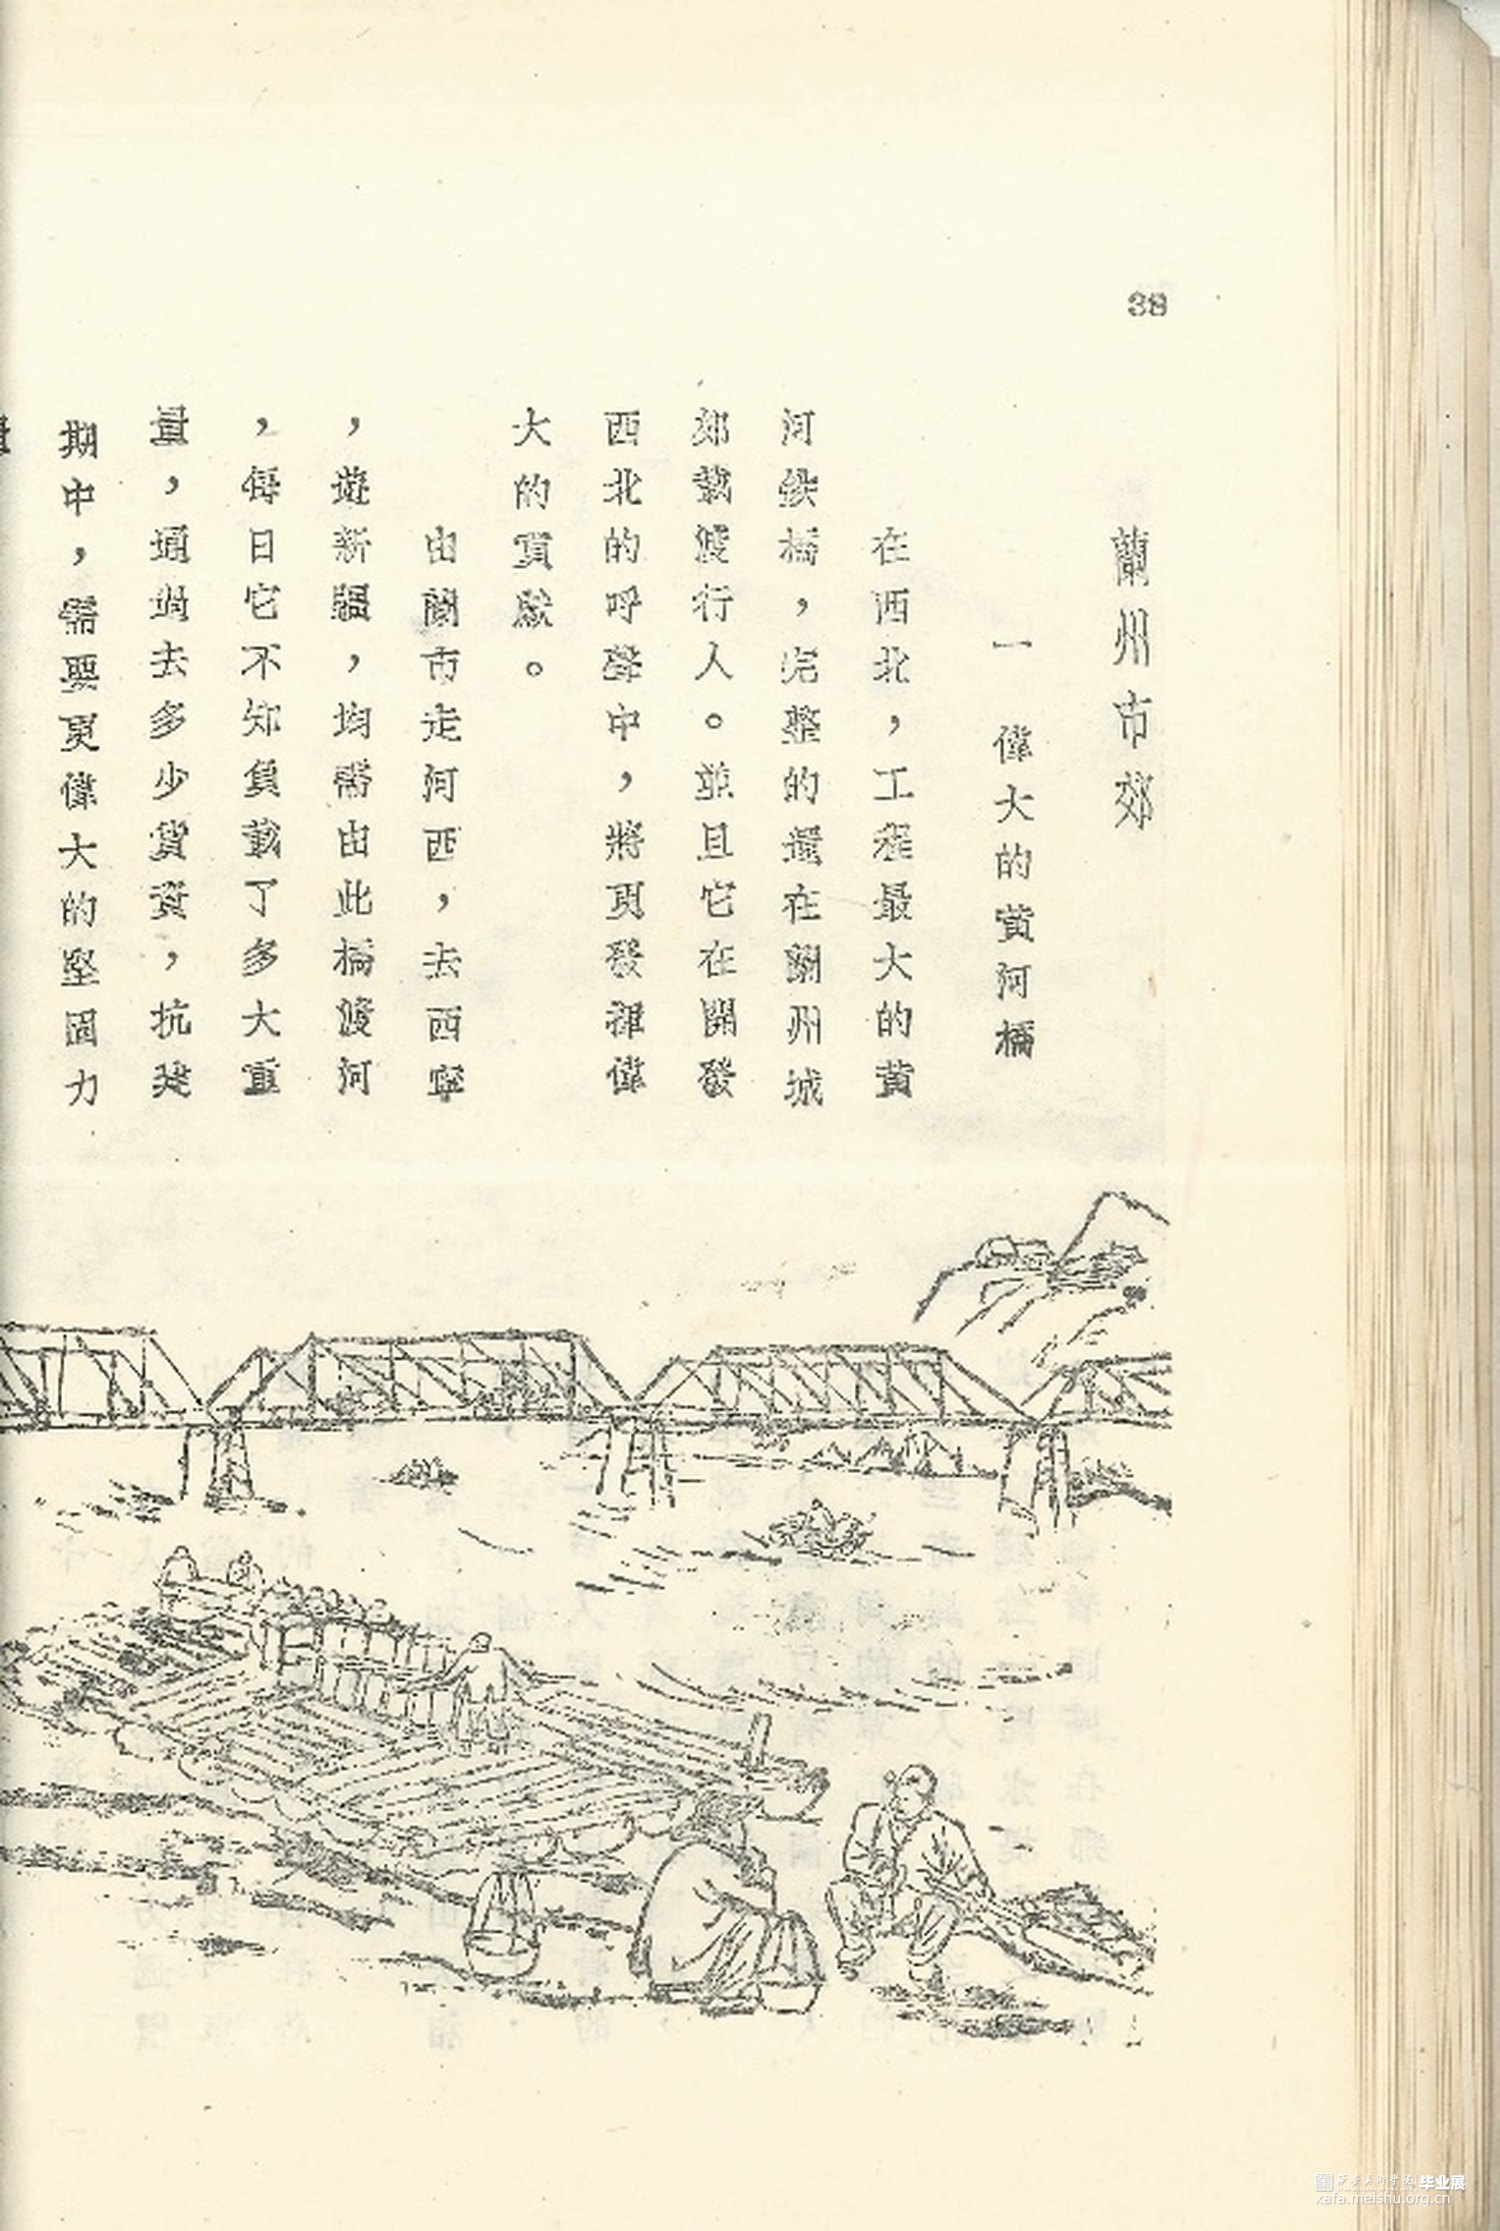 38
蘭州市郊
一 偉大的黃河橋
在西北，工程最大的黃
河鉄橋，完整的還在蘭州城
郊載渡行人。並且它在開發
西北的呼聲中，將更發揮偉
大的貢獻。
由蘭市走河西，去西寧
，遊新疆，均需由此橋渡河
，每日它不知負載了多大重
量，通過去多少貨資，抗建
期中，需要更偉大的堅固力
量
西安美術學院 毕业展
xafa.meishu.org.cn